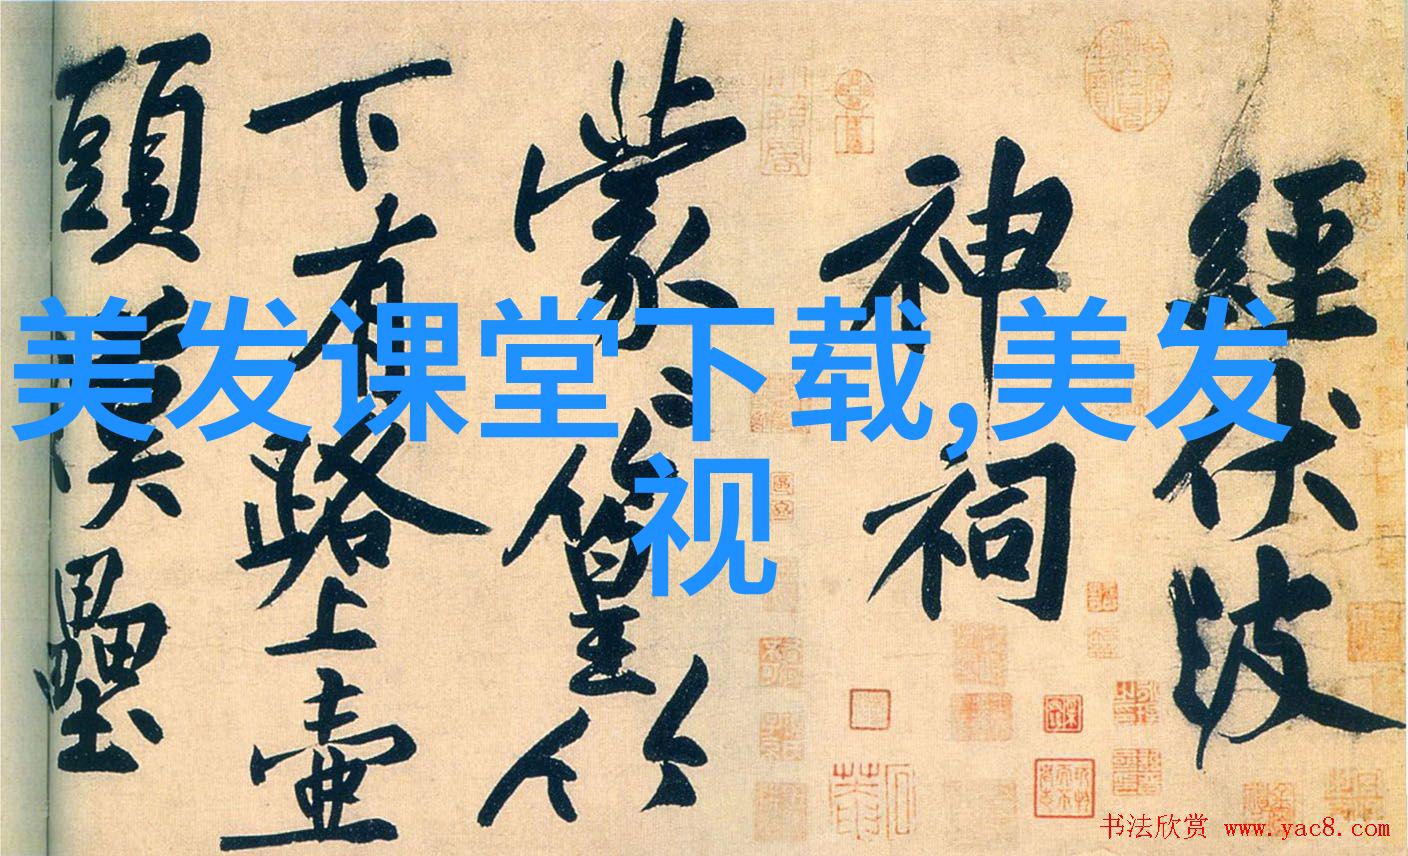 經伏波
神祠
蒙蒙篁竹
下有路上壺
頭漢壘
美发课堂下载,美发
视
书法欣赏 www.yac8.com